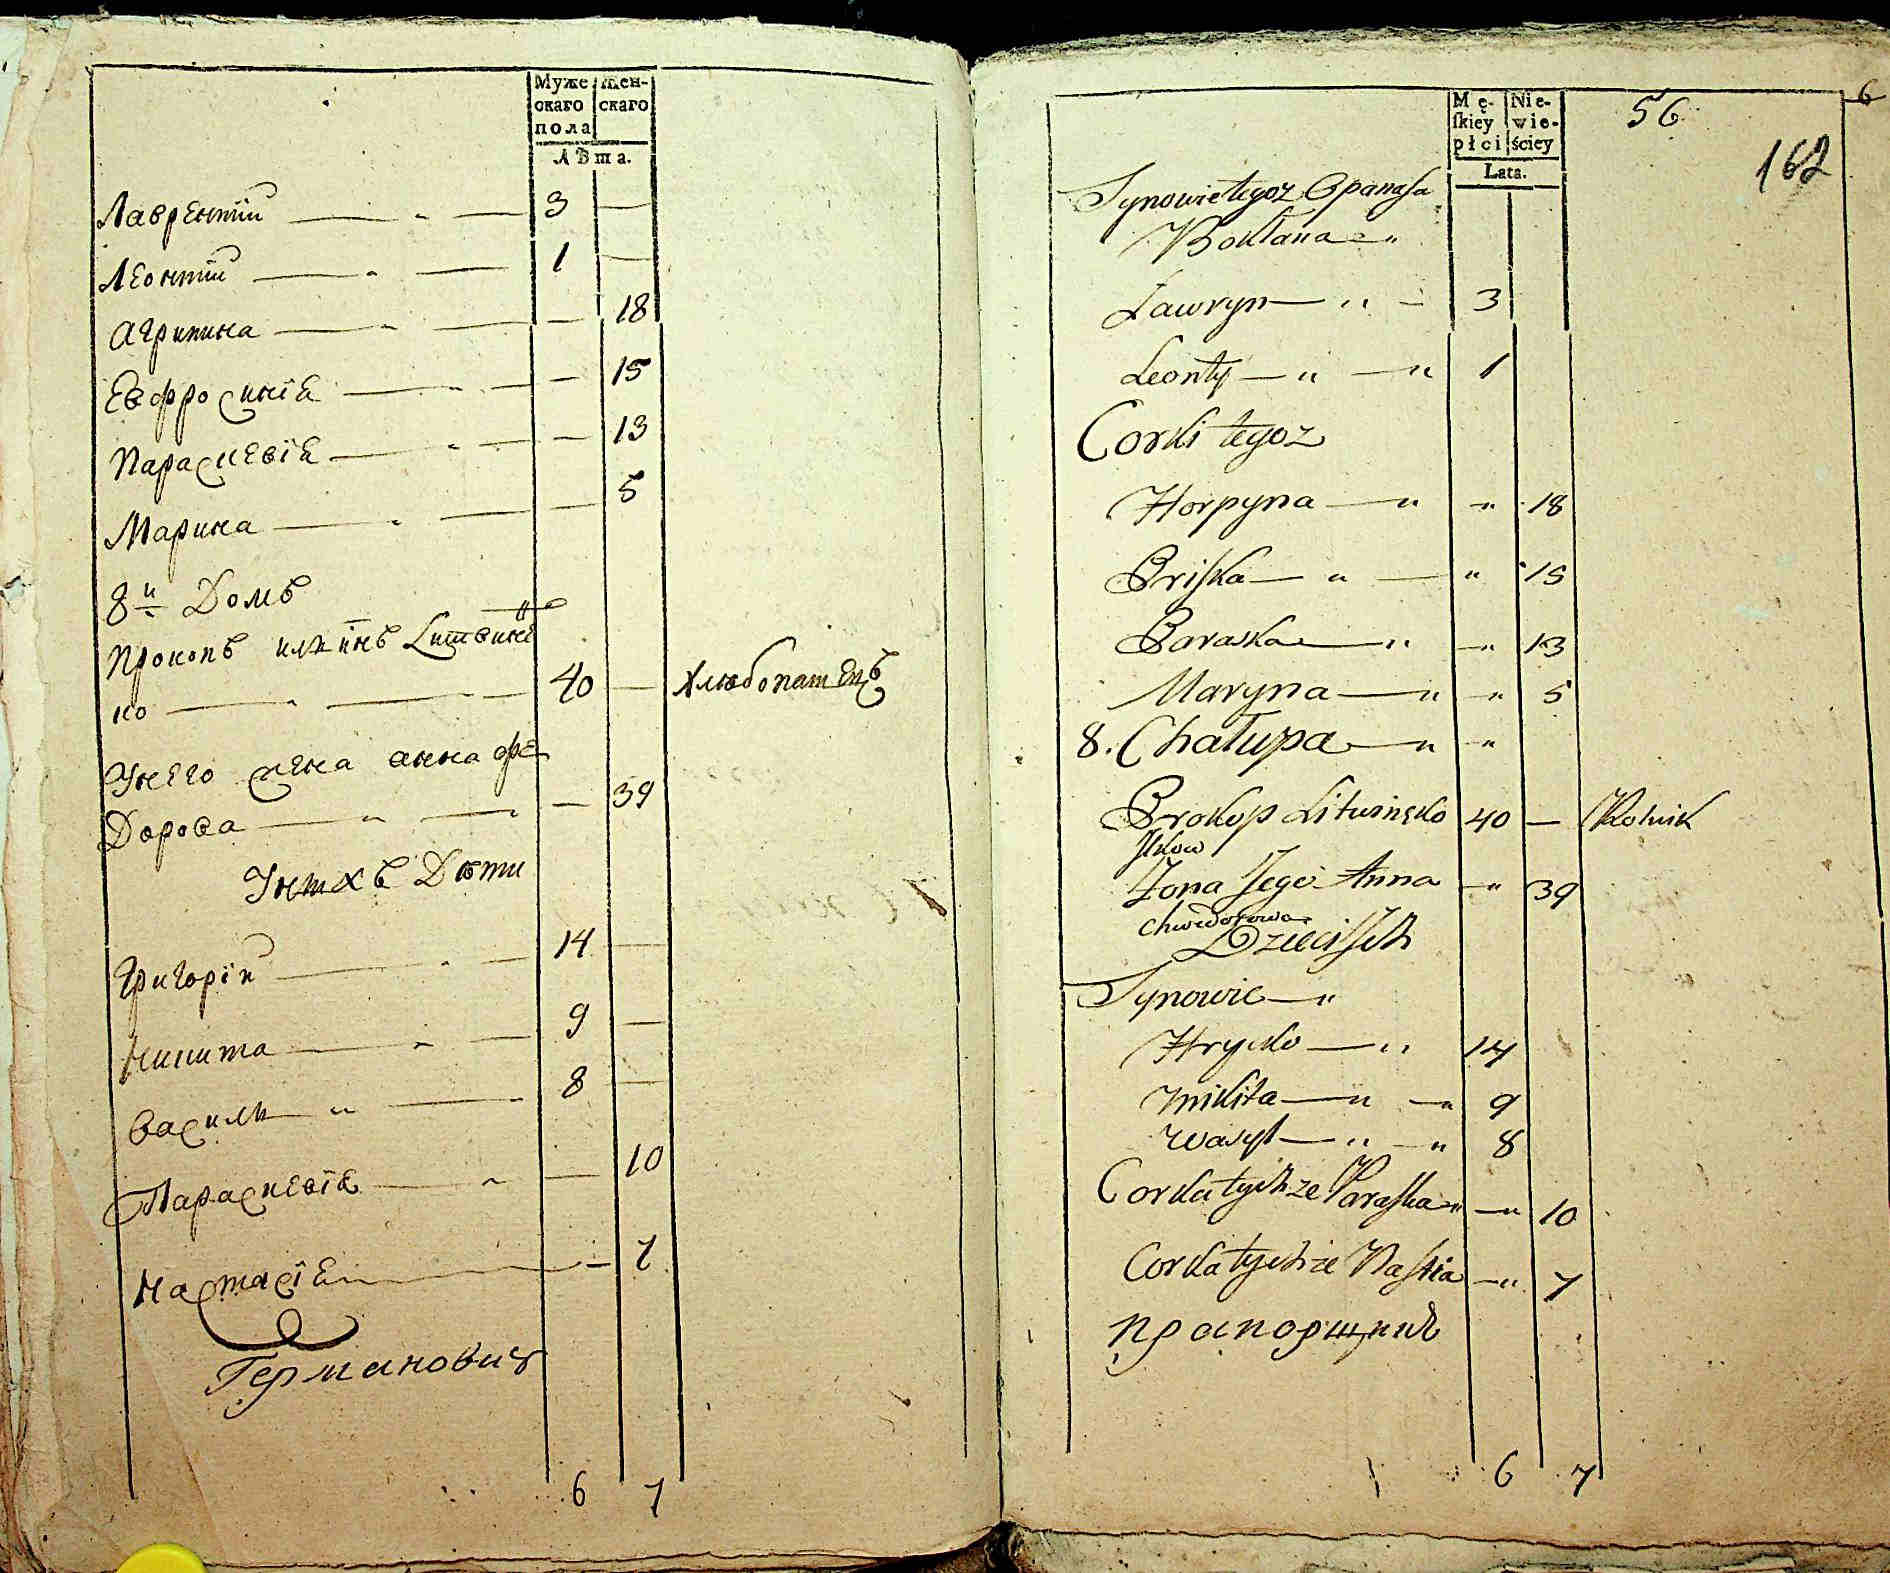 Муже
скаго
пола
Жен-
скаго
Лѣта.
Лаврентій — „ — 3 —
Леонтій — „ — 1 —
Агрипина — „ — — 18
Евфросинія — „ — — 15
Параскевія — „ — — 13
Марина — „ — — 5
8й Домъ
Прокопъ илкинъ Литвинѣ
ко — „ — 40 — Хлѣбопашецъ
Унего жена анна фе
Дорова — „ — — 39
Унихъ Дѣти
Григорій — „ — 14 —
Никита — „ — 9 —
Василь — „ — 8 —
Параскевія — „ — 10
Настасія — — 7
Германович
6 7
Mę-
ſkiey
płci
Nie-
wie-
ściey
Lata.
56
6
162
Synowie tegoz Opanasa
Lawryn — „ — 3
Leonty — „ — „ 1
Corki tegoz
Horpyna — „ „ 18
Priska — „ — „ 15
Paraska — „ — „ 13
Maryna — „ — „ 5
8. Chałupa — „ — „
Prokop Litwinęko 40 — Rolnik
Ilkow
Zona Jego Anna — „ 39
Chwedorowa
Dzieci Ich
Synowie — „
Hrycko — „ 14
Mikita — „ — „ 9
Wasyl — „ — „ 8
Corka tychze Paraska „ — „ 10
Corka tychze Nastia — „ 7
прапорщикъ
6 7